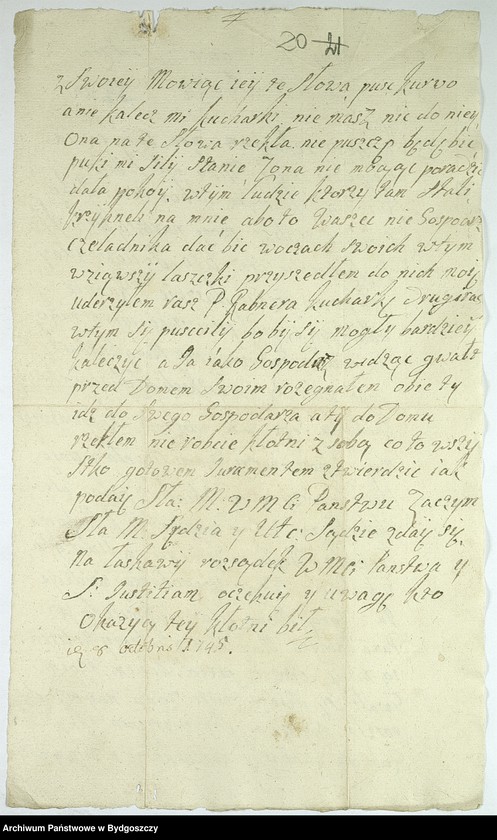 20 21
z Swoiey Mowiąc iey te Słowa puść kurwo
a nie kalecz mi kucharki nie masz nic do niey
Ona na te Słowa rzekła nie puszczę będę bić
puki mi siły stanie Zona nie mogąc poradzic
dała pokoy, wtym ludzie ktorzy tam stali
krzykneli na mnie abo to Waszec nie Gospodarz
czeladnika dać bić w oczach swoich wtym
wziąwszy laszczki przyszedłem do nich moiey
uderzyłem raz P. Rabnera kucharkę drugi raz
wtym się pusciły bo by się mogły bardziey
kaleczyc a Ja iako Gospodarz widząc gwałt
przed Domem swoim rozegnałem obie ty
idz do swego Gospodarza a ty do Domu
rzekłem nie robcie kłotni z sobą co to wszy
stko gotowem Juramentem ztwierdzic iak
podaię Sła: M: W M Ci Panstwu Zaczym
Sła M. Sędzia y Sądzie zdaię się
Na łaskawy rozsądek W M Ci Panstwa y
S: Justitiam oczekuię y uwagę kto
Okazyą tey kłotni był
8 octobris 1745.
Archiwum Państwowe w Bydgoszczy